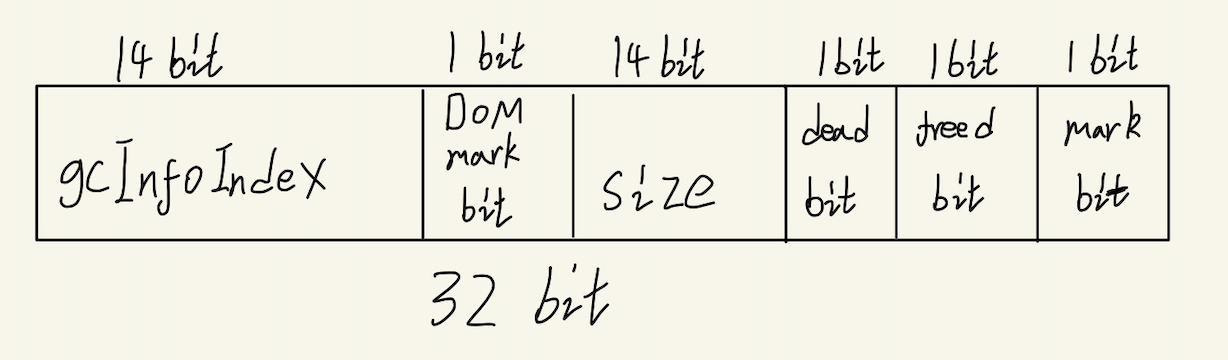 14 bit 1 bit 14 bit 1 bit 1 bit 1 bit
gcInfoIndex
DOM
mark
bit
size
dead
bit
freed
bit
mark
bit
32 bit